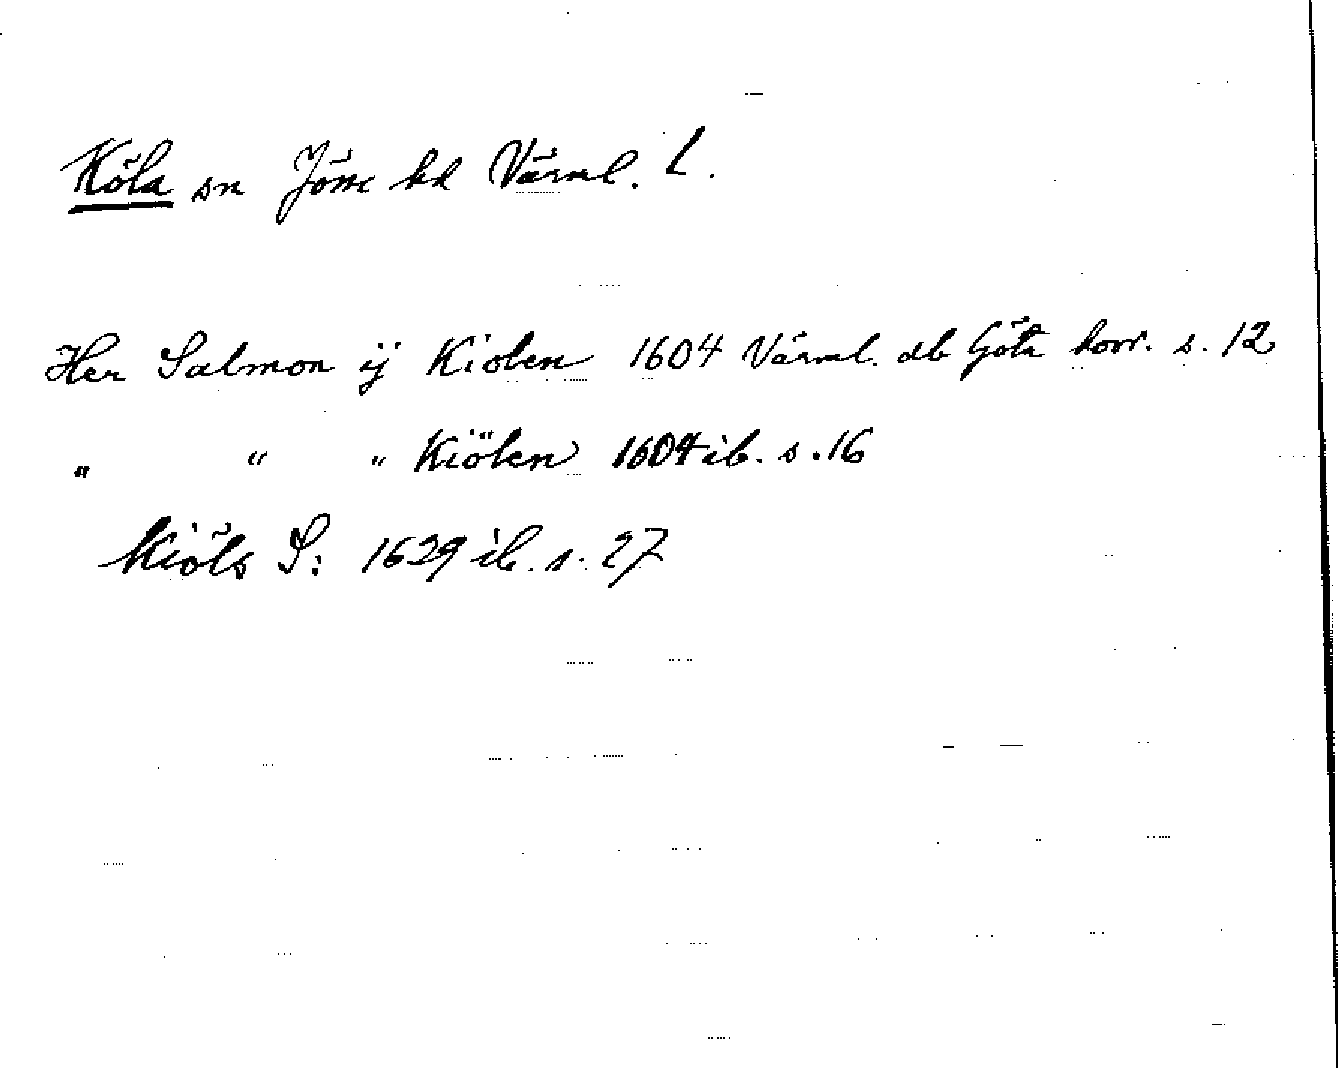 Köla sn Jösse hd Värml. L.
Her Salmon ij Kiölen 1604 Värml. db Göta hovr. s. 12
" " " Kiölen 1604 ib. s. 16
Kiöls S: 1629 ib. s. 27